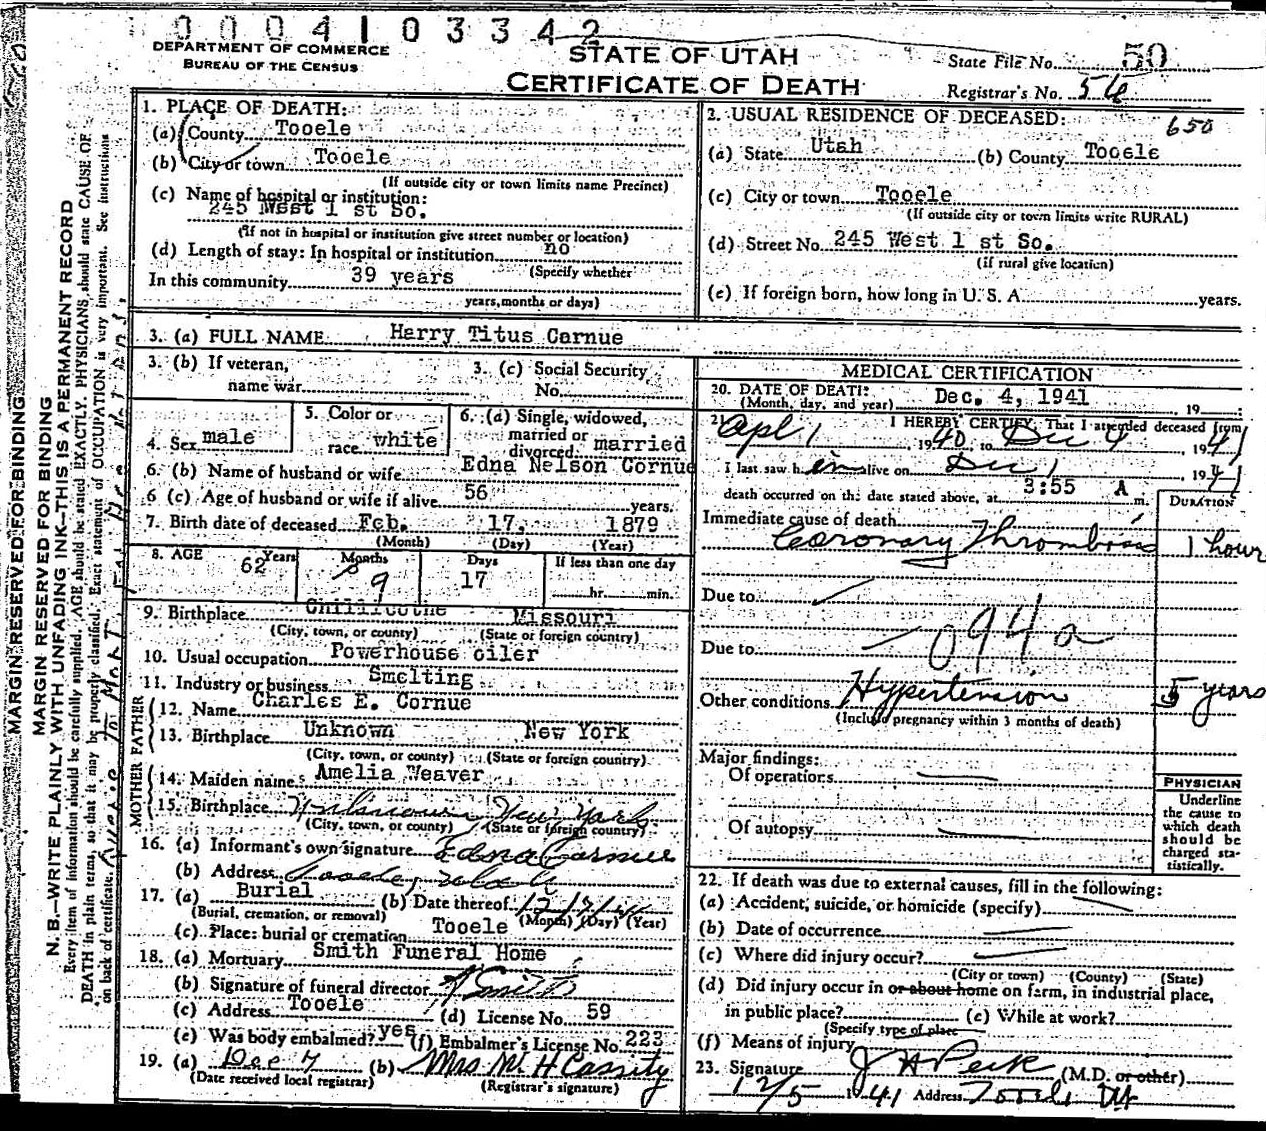 0 0 0 4 1 0 3 3 4 2
DEPARTMENT OF COMMERCE
BUREAU OF THE CENSUS
STATE OF UTAH
CERTIFICATE OF DEATH
State File No. 50
Registrar's No. 56
1. PLACE OF DEATH:
(a) County Tooele
(b) City or town Tooele
(If outside city or town limits name Precinct)
(c) Name of hospital or institution:
245 West 1 st So.
(If not in hospital or institution give street number or location)
(d) Length of stay: In hospital or institution no
(Specify whether
In this community 39 years
years, months or days)
2. USUAL RESIDENCE OF DECEASED: 650
(a) State Utah (b) County Tooele
(c) City or town Tooele
(If outside city or town limits write RURAL)
(d) Street No. 245 West 1 st So.
(if rural give location)
(e) If foreign born, how long in U. S. A. years.
3. (a) FULL NAME Harry Titus Cornue
3. (b) If veteran,
name war
3. (c) Social Security
No.
4. Sex male
5. Color or
race white
6. (a) Single, widowed,
married or
divorced married
6. (b) Name of husband or wife Edna Nelson Cornue
6 (c) Age of husband or wife if alive 56 years.
7. Birth date of deceased Feb. 17. 1879
(Month) (Day) (Year)
8. AGE 62 Years Months 9 Days 17 If less than one day
hr. min.
9. Birthplace Chillicothe Missouri
(City, town, or county) (State or foreign country)
10. Usual occupation Powerhouse oiler
11. Industry or business Smelting
FATHER
12. Name Charles E. Cornue
13. Birthplace Unknown New York
(City, town, or county) (State or foreign country)
MOTHER
14. Maiden name Amelia Weaver
15. Birthplace Unknown New York
(City, town, or county) (State or foreign country)
16. (a) Informant's own signature Edna Cornue
(b) Address Tooele, Utah
17. (a) Burial (b) Date thereof 12/7/41
(Burial, cremation, or removal) (Month) (Day) (Year)
(c) Place: burial or cremation Tooele
18. (a) Mortuary Smith Funeral Home
(b) Signature of funeral director Smith
(c) Address Tooele (d) License No. 59
(e) Was body embalmed? yes (f) Embalmer's License No. 223
19. (a) Dec 7 (b) Mrs M. H Cassity
(Date received local registrar) (Registrar's signature)
MEDICAL CERTIFICATION
20. DATE OF DEATH: Dec. 4, 1941
(Month, day, and year) , 19 :
21. I HEREBY CERTIFY, That I attended deceased from
Apl 1 1940 to Dec 4 , 1941
I last saw him alive on Dec 1 , 1941
death occurred on the date stated above, at 3:55 A m.
DURATION
Immediate cause of death
Coronary Thrombosis 1 hour
Due to
Due to 094a
Other conditions Hypertension 5 years
(Include pregnancy within 3 months of death)
Major findings:
Of operations
Of autopsy
PHYSICIAN
Underline
the cause to
which death
should be
charged sta-
tistically.
22. If death was due to external causes, fill in the following:
(a) Accident, suicide, or homicide (specify)
(b) Date of occurrence
(c) Where did injury occur?
(City or town) (County) (State)
(d) Did injury occur in or about home on farm, in industrial place,
in public place? (e) While at work?
(Specify type of place
(f) Means of injury
23. Signature J H Peck (M.D. or other)
12/5 1941 Address Tooele Ut
MARGIN RESERVED FOR BINDING
MARGIN RESERVED FOR BINDING
N. B.—WRITE PLAINLY WITH UNFADING INK—THIS IS A PERMANENT RECORD
Every item of information should be carefully supplied. AGE should be stated EXACTLY. PHYSICIANS should state CAUSE OF
DEATH in plain terms, so that it may be properly classified. Exact statement of OCCUPATION is very important. See instructions
on back of certificate.